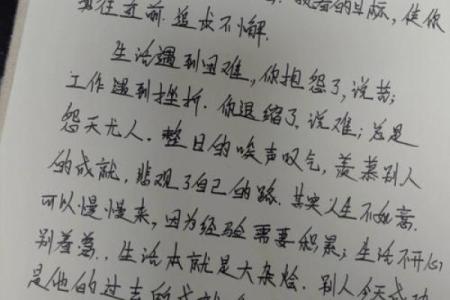 往前，追求不懈.
生活遇到困难，你抱怨了，说苦；
工作遇到挫折，你退缩了，说难；总是
怨天尤人.整日的唉声叹气，羡慕别人
的成就，悲观了自己的路.其实人生不如意.
可以慢慢来，因为经验需要积累；生活不开心，
别着急.，生活本就是大杂烩.别人今天
是他的过去的